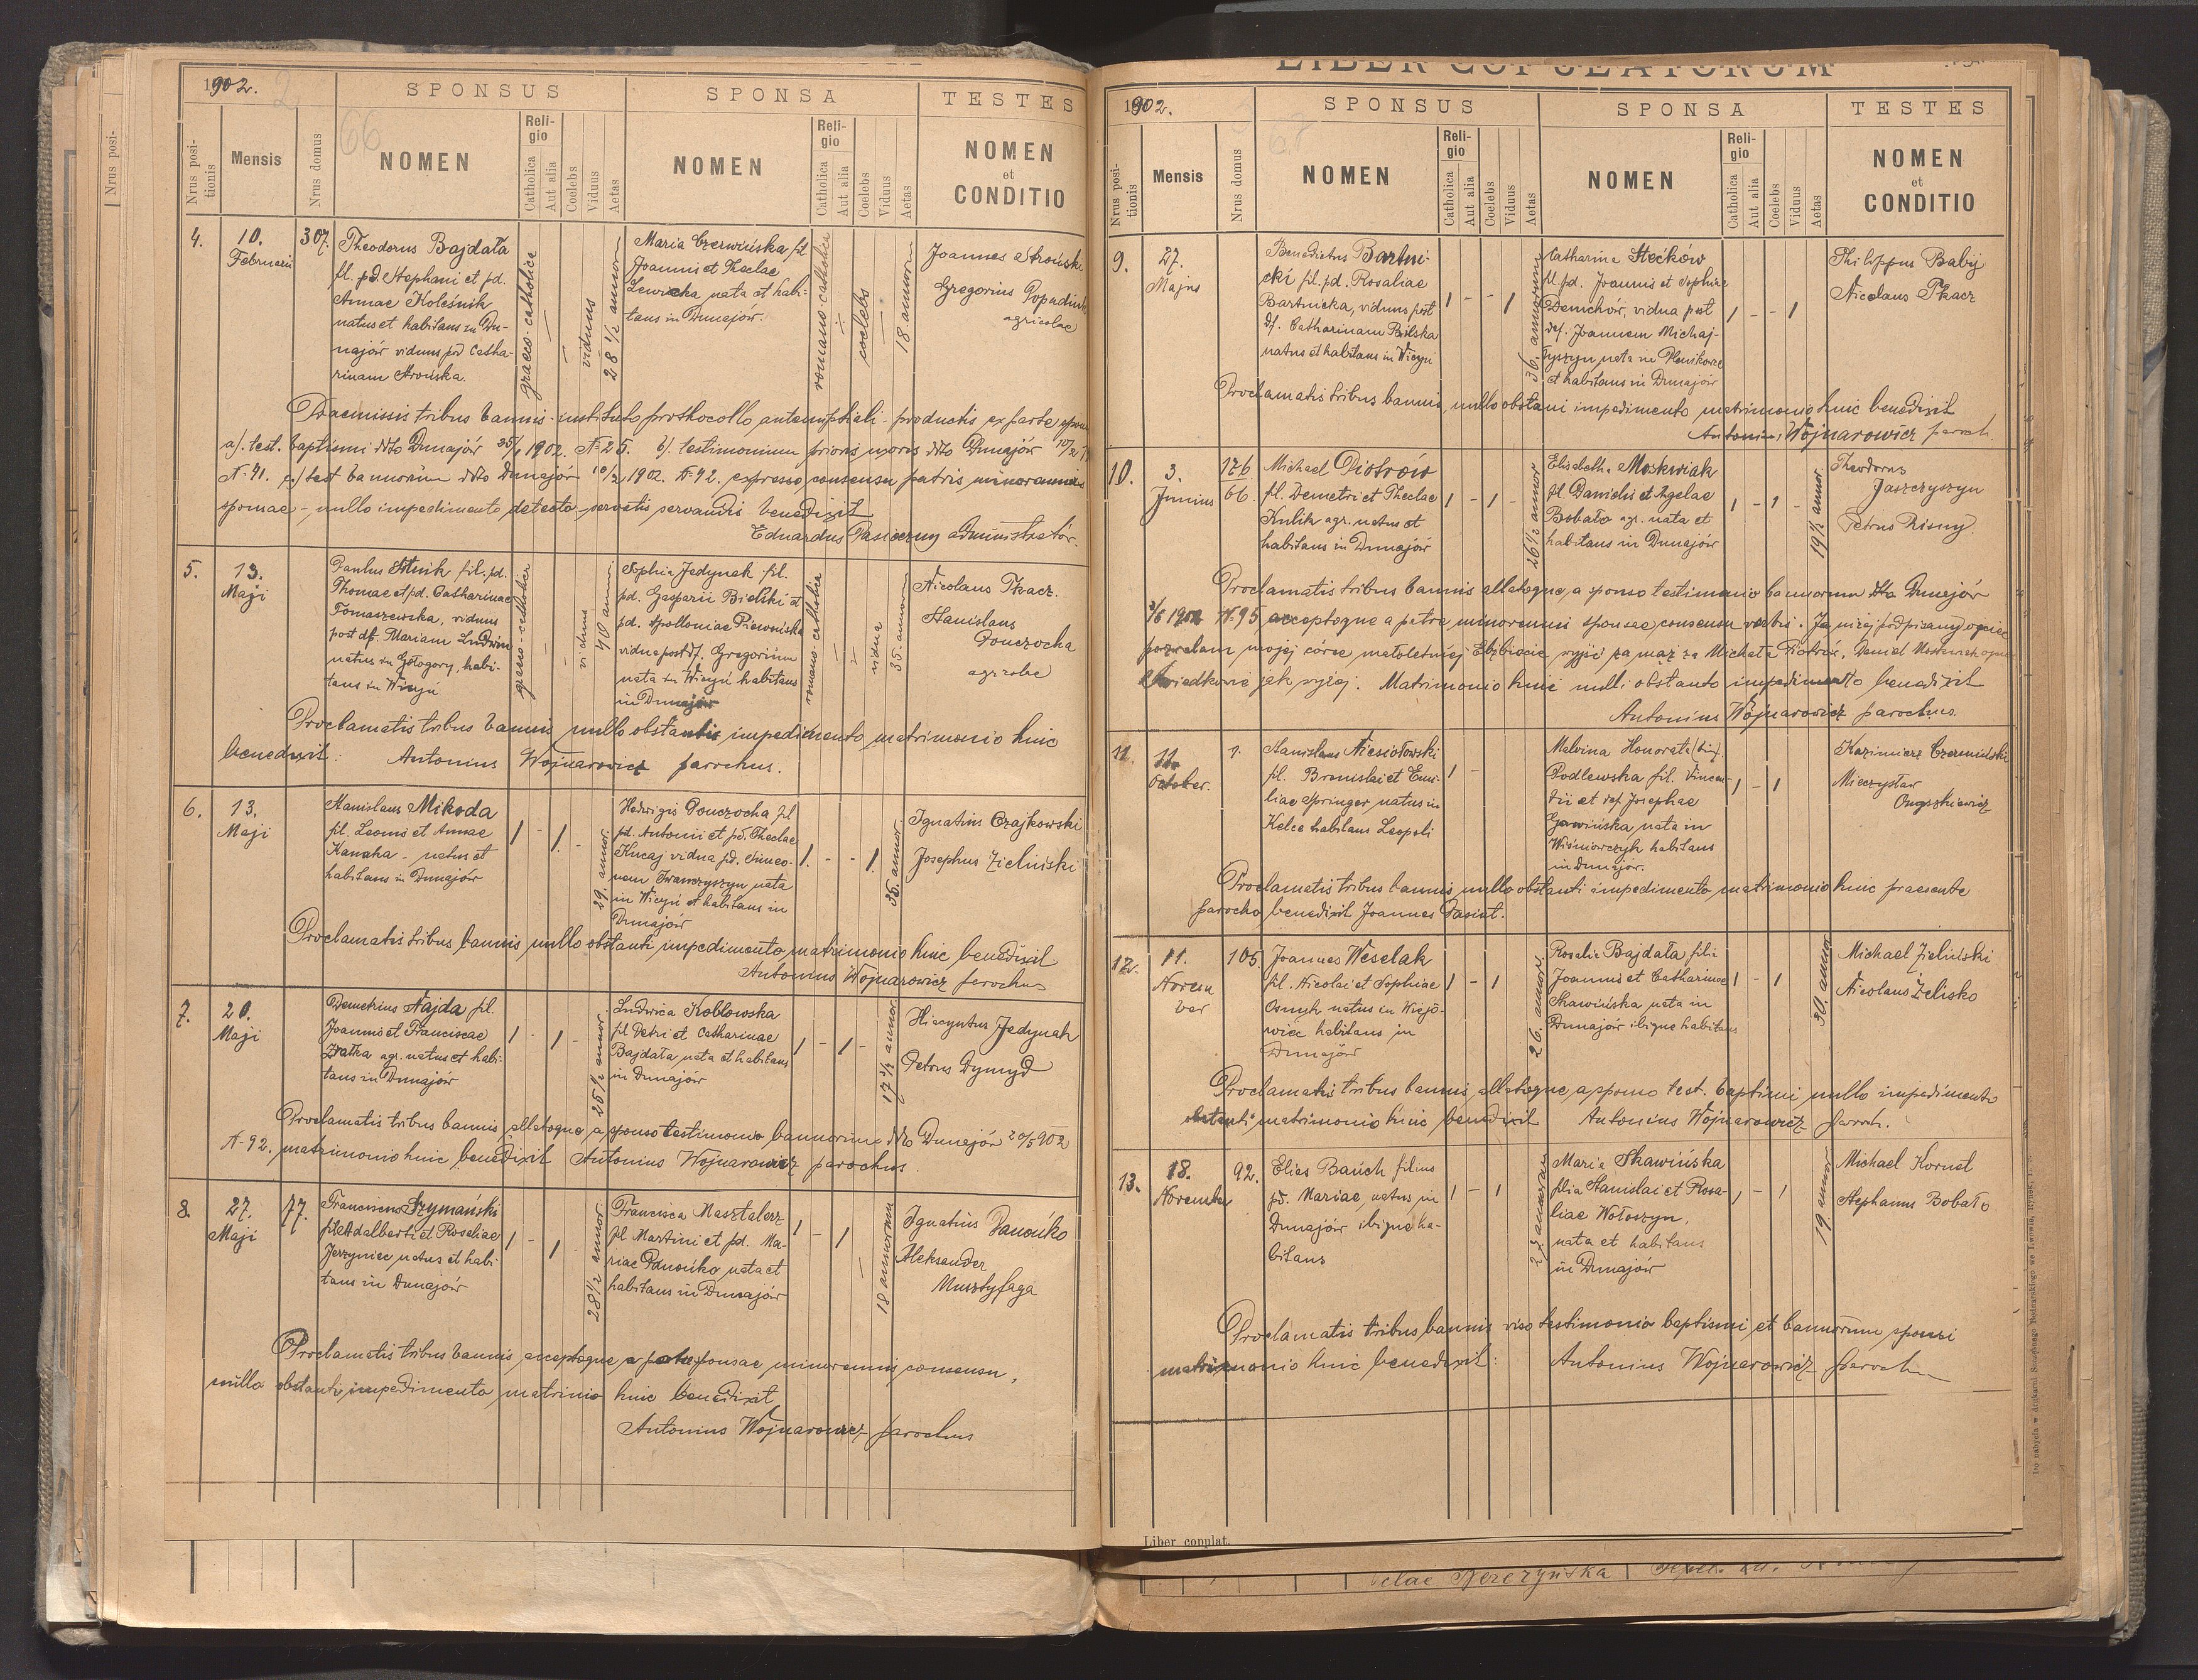 1902.
SPONSUS
SPONSA
TESTES
Nrus positionis
Mensis
Nrus domus
NOMEN
Religio
Catholica
Aut alia
Coelebs
Viduus
Aetas
NOMEN
Religio
Catholica
Aut alia
Coelebs
Viduus
Aetas
NOMEN
et
CONDITIO
4.
10.
Februarii
307.
Theodorus Bajdała
fil. pd. Stephani et pd.
Annae Koleśnik
natus et habitans in Du-
najów viduus pd Catha-
rinam
graeco-catholica
viduus
28 1/2 annor
Maria Czerwińska fil
Joannis et Theclae
Lewicka nata et habi-
tans in Dunajów.
romano-catholica
coelebs
18 annor
Joannes
Gregorius
agricolae
Praemissis tribus bannis - instituto prothocollo antenuptiali - productis ex parte
a). test. baptismi ddto Dunajów 1902. N= 25. b). testimonium prioris uxoris ddto Dunajów
N= 41. c) test bannorum ddto Dunajów 10/2 1902. N= 42. expresso consensu patris minorennis
sponsae - nullo impedimento detecto - servatis servandis benedixit
Eduardus administrator.
5.
13.
Maji
Paulus fil. pd.
Thomae et pd. Catharinae
Tomaszewska, viduus
post df. Mariam Ludwin
natus in Gołogory, habi-
tans in Wicyń
graeco-catholica
viduus
40 anni
Sophia Jedynak fil.
pd. Gasparii Bielski et
pd. Apolloniae
vidua post df. Gregorium
nata in Wicyń habitans
in Dunajów
romano-catholica
vidua
35. annorum
Nicolaus Tkacz.
Stanislaus
Pouczocha
agricolae
Proclamatis tribus bannis nullo obstanti impedimento matrimonio huic
benedixit: Antonius Wojnarowicz parochus.
6.
13.
Maji
Stanislaus Mikoda
fil. Leonis et Annae
Kanaha - natus et
habitans in Dunajów
29. annor.
Hedwigis Pouczocha fil
pd. Antonii et pd. Theclae
Kucaj vidua pd. Simeo-
nem Iwanczyszyn nata
in Wicyń et habitans in
Dunajów
35. annor.
Ignatius Czajkowski
Josephus Zieliński
Proclamatis tribus bannis nullo obstanti impedimento matrimonio huic benedixit
Antonius Wojnarowicz parochus
7.
20.
Maji
Demetrius Najda fil.
Joannis et Franciscae
Zratka agr. natus et habi-
tans in Dunajów
25 1/2 annor.
Ludwica Kobłowska
fil Petri et Catharinae
Bajdała nata et habitans
in Dunajów
annor
Hiacyntus Jedynak
Petrus Dymyd
Proclamatis tribus bannis allatoque a sponso testimonio bannorum ddto Dunajów 20/5 902
N= 92. matrimonio huic benedixit Antonius Wojnarowicz parochus.
8.
27.
Maji
77.
Franciscus Szymański
fil. Adalberti et Rosaliae
Jerzyniec natus et habi-
tans in Dunajów
28 1/2 annor
Francisca Masztalerz
fil Martini et pd. Ma-
riae Panońko nata et
habitans in Dunajów
18 annorum
Ignatius Panońko
Aleksander
Mustyfaga
Proclamatis tribus bannis acceptoque a sponsae minorennis consensu,
nullo obstanti impedimento matrimio huic benedixit
Antonius Wojnarowicz parochus
LIBER COPULATORUM
1902.
SPONSUS
SPONSA
TESTES
Nrus positionis
Mensis
Nrus domus
NOMEN
Religio
Catholica
Aut alia
Coelebs
Viduus
Aetas
NOMEN
Religio
Catholica
Aut alia
Coelebs
Viduus
Aetas
NOMEN
et
CONDITIO
9.
27.
Majus
Benedictus Bartni-
cki fil. pd. Rosaliae
Bartnicka, viduus post
df. Catharinam Bilska
natus et habitans in Wicyń
36. annorum
Catharina Stećków
fil pd. Joannis et Sophiae
Demchów, vidua post
def. Joannem Michaj-
łyszyn nata in Plenikowce
et habitans in Dunajów
Philippus Babij
Nicolaus Tkacz
Proclamatis tribus bannis, nullo obstanti impedimento matrimonio huic benedixit
Antonius Wojnarowicz paroch.
10.
3.
Junius
176
66.
Michael Piotrów
fil. Demetri et Theclae
Kulik agr. natus et
habitans in Dunajów
26 1/2 annor
Elisabetha Moskwiak
fil. Danielis et Agelae
Bobało agr. nata et
habitans in Dunajów
19 1/2 annor.
Theodorus
Jaszczyszyn
Petrus Zisny
Proclamatis tribus bannis allatoque, a sponso testimonio bannorum ddto Dunajów
3/6 1902 N= 95 acceptoque a patre minorennis sponsae consensu verbis. Ja niżej podpisany ojciec
pozwalam mojej córce małoletniej Elżbiecie wyjść za mąż za Michała Piotrów. Daniel Moskwiak ojciec
Świadkowie jak wyżej. Matrimonio huic nulli obstanto impedimento benedixit
Antonius Wojnarowicz parochus.
11.
11.
October.
1.
Stanislaus Niesiołowski
fil. Bronislai et Emi-
liae Springer natus in
Kelce habitans Leopoli
Malvina Honorata (bin).
Podlewska fil. Vincen-
tii et def. Josephae
nata in
Wiśniowczyk habitans
in Dunajów.
Kazimierz Czermiński
Mieczysław
Onyszkiewicz
Proclamatis tribus bannis nullo obstanti impedimento matrimonio huic praesente
parocho benedixit Joannes
12.
11.
Novem
ber
105.
Joannes Weselak
fil. Nicolai et Sophiae
Osnyk natus in
habitans in
Dunajów
26. annor.
Rosalia Bajdała filia
Joannis et Catharinae
Skawińska nata in
Dunajów ibique habitans
30. annor
Michael Zieliński
Nicolaus Zelisko
Proclamatis tribus bannis, allatoque, a sponso test. baptismi nullo impedimento
obstanti matrimonio huic benedixit Antonius Wojnarowicz paroch.
13.
18.
November
92.
Elias Bauch filius
pd. Mariae natus in
Dunajów ibique ha-
bitans
annorum
Maria Skawińska
filia Stanislai et Rosa-
liae Wołoszyn,
nata et habitans
in Dunajów
19 annor
Michael Kornel
Stephanus Bobało
Proclamatis tribus bannis viso testimonio baptismi et bannorum sponsi
matrimonio huic benedixit: Antonius Wojnarowicz paroch
Liber copulat.